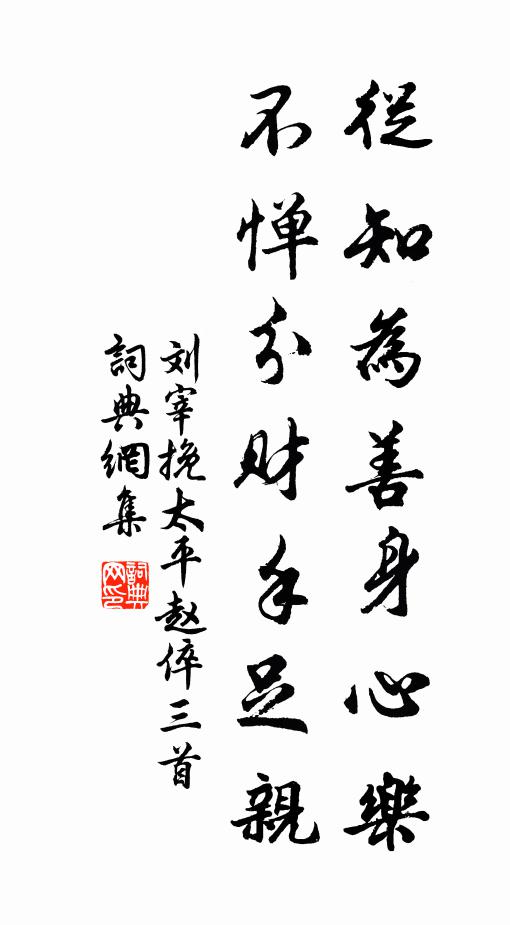 從知為善身心樂
不惮分财手足親
刘宰挽太平赵倅三首
詞典網集
詞典网印